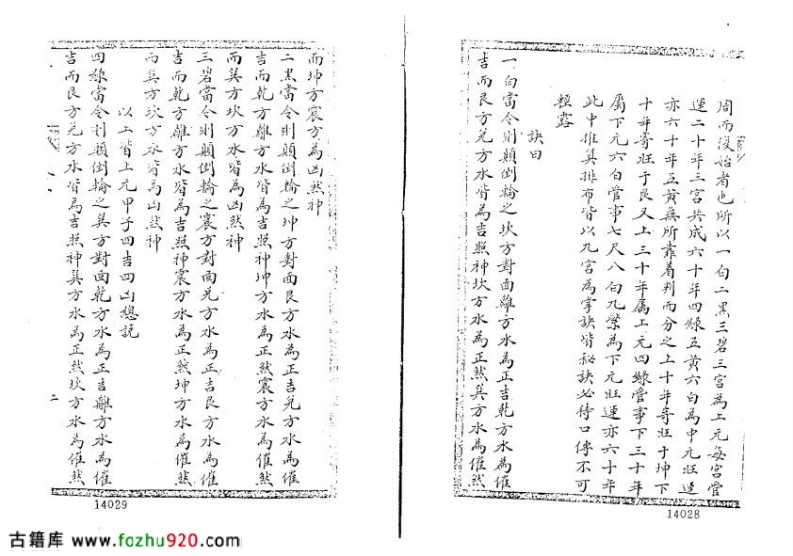 周而復始者也所以一白二黑三碧三宮為上元每宮管
運二十年三宮共成六十年四綠五黃六白為中元旺運
亦六十年五黃無所靠着判而分之上十年寄旺于坤下
十年寄旺于艮又上三十年属上元四綠管事下三十年
屬下元六白管事七尺八白九紫為下元旺運亦六十年
此中推算排布皆以九宮為掌訣皆秘訣必待口傳不可
輕露
訣曰
一白當令則顛倒輪之坎方對面離方水為正吉乾方水為催
吉而艮方兌方水皆為吉照神坎方水為正煞巽方水為催煞
14028
而坤方震方為凶煞神
二黑當令則顛倒輪之坤方對面艮方水為正吉兌方水為催
吉而乾方離方水皆為吉照神坤方水為正煞震方水為催煞
而巽方坎方水皆為凶煞神
三碧當令則顛倒輪之震方對面兌方水為正吉艮方水為催
吉而乾方離方水皆為吉照神震方水為正煞坤方水為催煞
而巽方坎方水皆為凶煞神
以上皆上元甲子四吉四凶總說
四綠當令則顛倒輪之巽方對面乾方水為正吉離方水為催
吉而艮方兌方水皆為吉照神巽方水為正煞坎方水為催煞
二
14029
古籍库 www.fozhu920.com